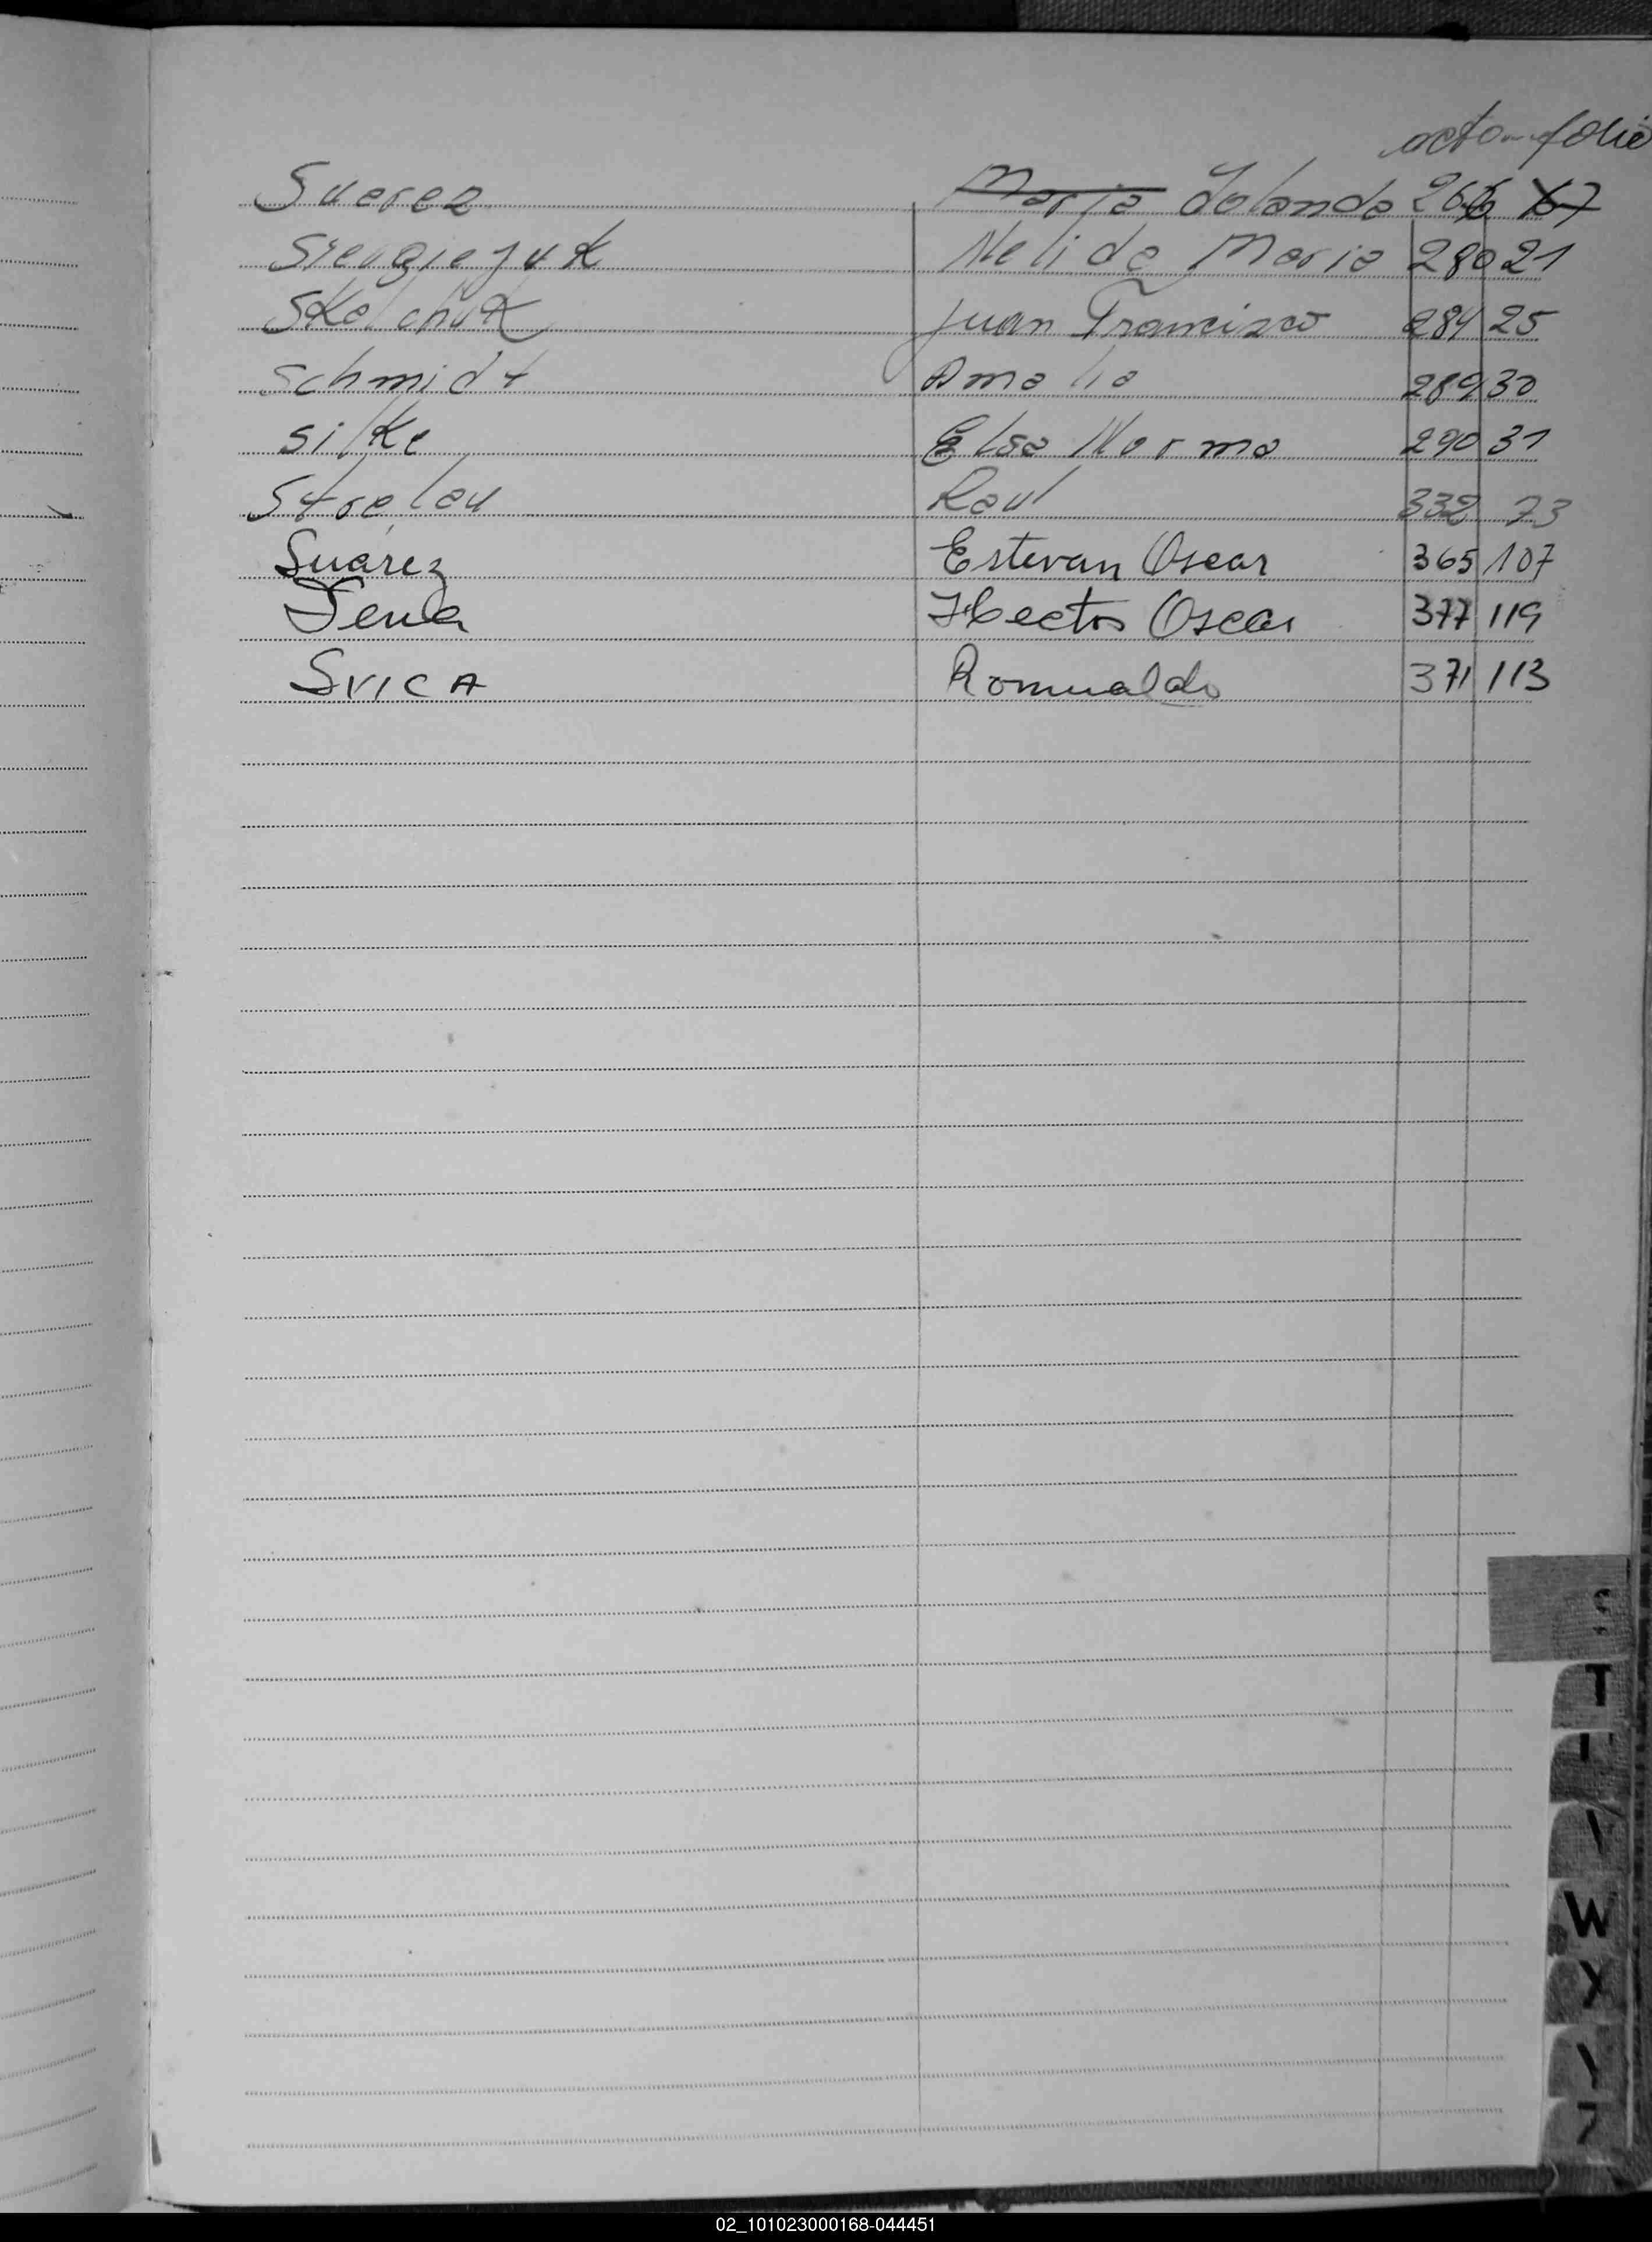 acta folio
Suarez Maria Iolanda 266 67
280 21 Nelida Maria
Juan Francisco 284 25
Schmidt Amalia 289 30
Silke Elsa Norma 290 31
Strelau Raul 332 73
Suárez Estevan Oscar 365 107
Sena Hector Oscar 377 119
SVICA Romualdo 371 113
S
T
W
X
Z
02_101023000168-044451